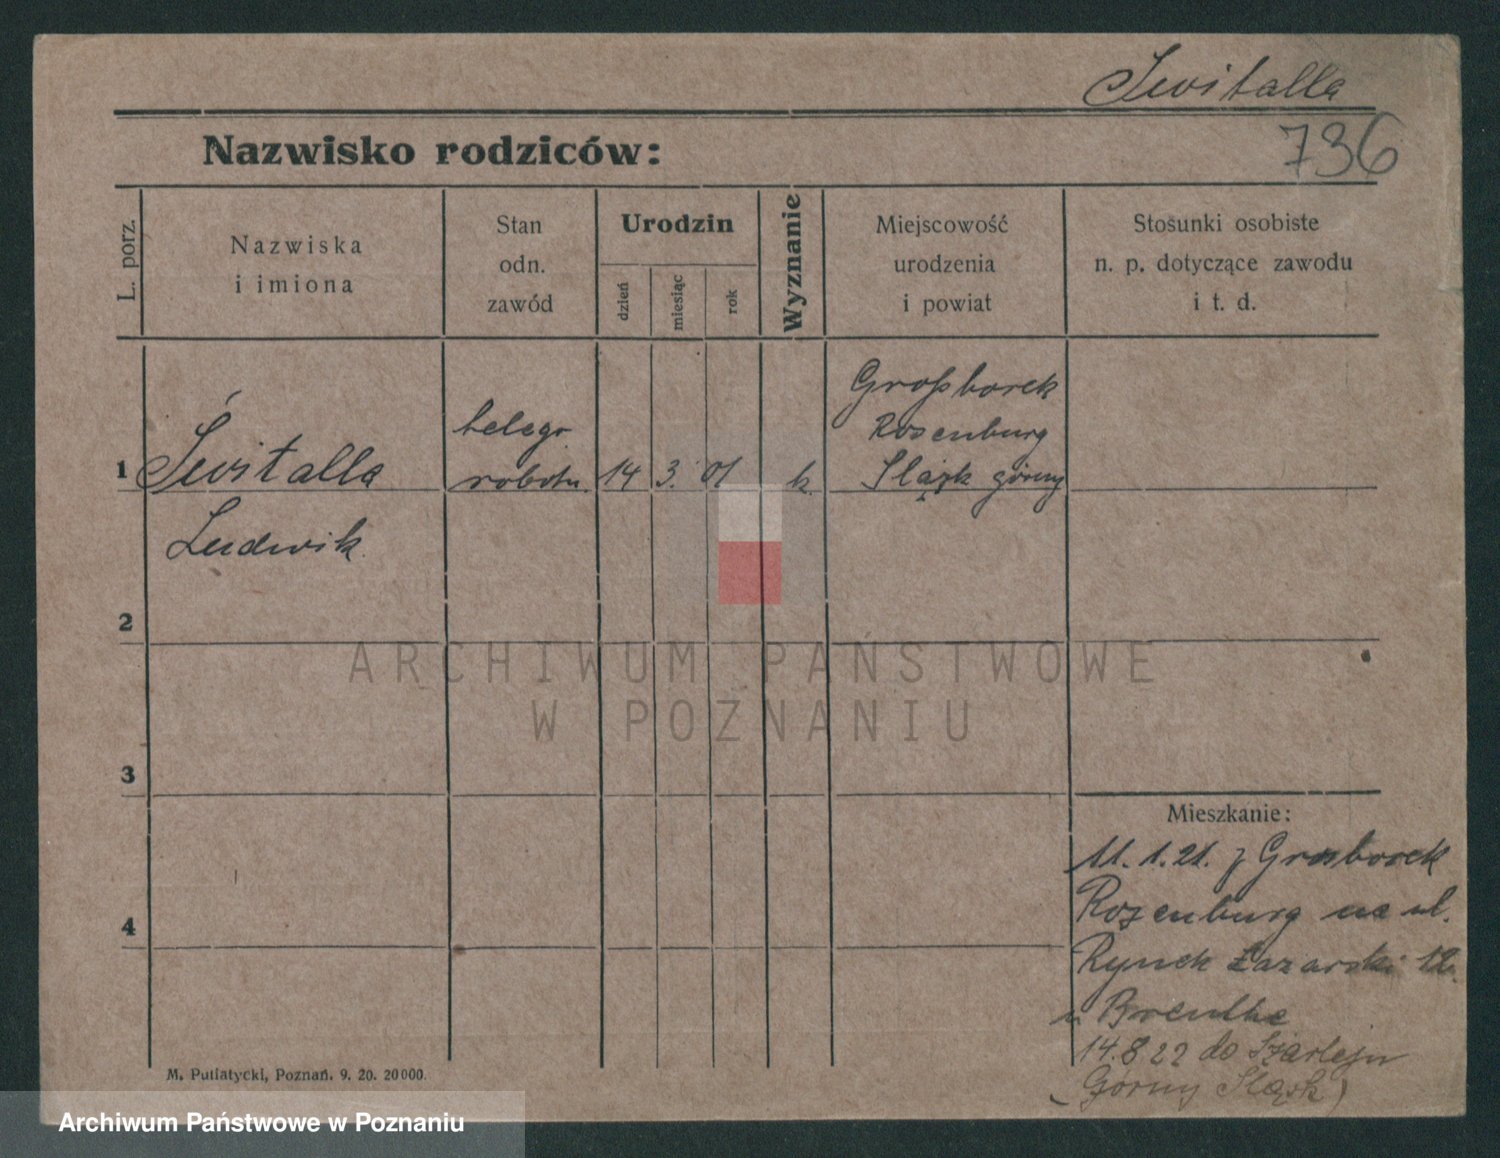 Switalla
736
Nazwisko rodziców:
L. porz.
Nazwiska
i imiona
Stan
odn.
zawód
Urodzin
dzień
miesiąc
rok
Wyznanie
Miejscowość
urodzenia
i powiat
Stosunki osobiste
n. p. dotyczące zawodu
i t. d.
1
Świtalla
Ludwik
telegr.
robotn.
14
3.
01
k.
Großborek
Rosenburg
Sląsk górny
2
3
4
Mieszkanie:
11.1.21. z Grosborek
Rozenburg na ul.
Rynek Łazarski 12.
u
14.8 22 do Szarleju
(Górny Sląsk)
M. Putiatycki, Poznań. 9. 20. 20000.
ARCHIWUM PAŃSTWOWE
W POZNANIU
Archiwum Państwowe w Poznaniu